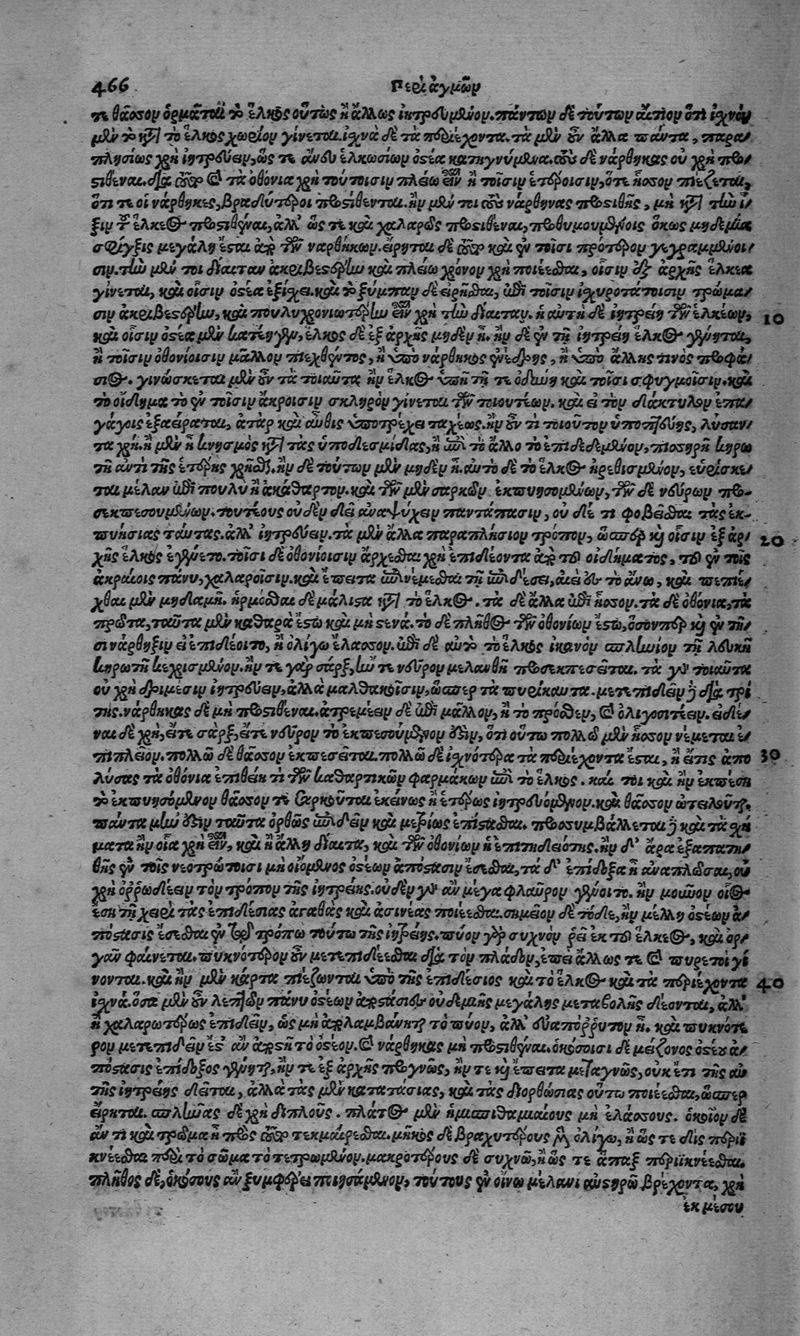 466 Περὶ ἀγμῶν
τε θᾶσσον ὁρμᾶται τὸ ἕλκος οὕτως ἢ ἄλλως ἰητρευόμενον. πάντων δὲ τούτων αἴτιον ὅτι ἰχνὸν
μὲν τὸ κατὰ τὸ ἕλκος χωρίον γίνεται. ἰχνὰ δὲ τὰ περιέχοντα. τὰ μὲν οὖν ἄλλα πάντα, παρα-
πλησίως χρὴ ἰητρεύειν, ὥς τε ἄνευ ἑλκωσίων ὀστέα κατηγνύμενα. τοὺς δὲ νάρθηκας οὐ χρὴ προσ-
τιθέναι. διὰ τοῦτο καὶ τὰ ὀθόνια χρὴ τούτοισιν πλείω εἶναι ἢ τοῖσιν ἑτέροισιν, ὅτε ἧσσον πιέζεται,
ὅτι τε οἱ νάρθηκες, βραδύτεροι προστίθενται. ἢν μέν τοι τοὺς νάρθηκας προστιθῇς, μὴ κατὰ τὴν ἴ-
ξιν τοῦ ἕλκεος προστιθέναι, ἀλλ' ὥς τε καὶ χαλαρῶς προστιθέναι, προθυμουμένοις ὅκως μηδεμία
σφίγξις μεγάλη ἔσται ἀπὸ τῶν ναρθήκων. εἴρηται δὲ τοῦτο καὶ ἐν τοῖσι πρότερον γεγραμμένοι-
σιν. τὴν μέν τοι δίαιταν ἀκριβεστέρην καὶ πλείω χρόνον χρὴ ποιέεσθαι, οἷσιν ἐξ ἀρχῆς ἕλκεα
γίνεται, καὶ οἷσιν ὀστέα ἐξίχει. καὶ τὸ ξύμπαν δὲ εἰρῆσθαι, ἐπὶ τοῖσιν ἰσχυροτάτοισιν τρώμα-
σιν ἀκριβεστέρην, καὶ πουλυχρονιωτέρην εἶναι χρὴ τὴν δίαιταν. ἡ αὐτὴ δὲ ἰητρείη τῶν ἑλκέων, 10
καὶ οἷσιν ὀστέα μὲν κατέηγεν, ἕλκος δὲ ἐξ ἀρχῆς μηδὲν ᾖ. ἢν δὲ ἐν τῇ ἰητρείῃ ἕλκος γένηται,
ἢ τοῖσιν ὀθονίοισιν μᾶλλον πιεχθέντος, ἢ ὑπὸ νάρθηκος ἐνέδρης, ἢ ὑπὸ ἄλλης τινὸς προφά-
σιος. γινώσκεται μὲν οὖν τὰ τοιαῦτα ἢν ἕλκος ὑπῇ τῇ τε ὀδύνῃ καὶ τοῖσι σφυγμοῖσιν. καὶ
τὸ οἴδημα τὸ ἐν τοῖσιν ἄκροισιν σκληρὸν γίνεται τῶν τοιουτέων. καὶ εἰ τὸν δάκτυλον ἐπα-
γάγοις ἐξαείραται, ἀτὰρ καὶ αὖθις ὑποτρέχει ταχέως. ἢν οὖν τι τοιοῦτον ὑποπτεύῃς, λύσαν-
τα χρὴ. ἢ μὲν ᾖ κνησμὸς κατὰ τὰς ὑποδεσμίδας, ἢ ἐπὶ τὸ ἄλλο τὸ ἐπιδεδεμένον, πισσηρῇ κηρω-
τῇ ἀντὶ τῆς ἑτέρης χρῆσθαι. ἢν δὲ τούτων μὲν μηδὲν ᾖ. αὐτὸ δὲ τὸ ἕλκος ἠρεθισμένον, εὑρίσκε-
ται μέλαν ἐπὶ πουλὺ ἢ ἀκάθαρτον. καὶ τῶν μὲν σαρκῶν ἐκπυησομένων, τῶν δὲ νεύρων προσ-
εκπεσουμένων. τουτέους οὐδὲν δεῖ ἀναψύχειν παντάπασιν, οὐ δέ τι φοβεῖσθαι τὰς ἐκ-
πυήσιας ταύτας. ἀλλ' ἰητρεύειν. τὰ μὲν ἄλλα παραπλήσιον τρόπον, ὥσπερ καὶ οἷσιν ἐξ ἀρ- 20
χῆς ἕλκος ἐγένετο. τοῖσι δὲ ὀθονίοισιν ἄρχεσθαι χρὴ ἐπιδέοντα ἀπὸ τοῦ οἰδήματος, τοῦ ἐν τοῖς
ἀκραίοις πάνυ, χαλαροῖσιν. καὶ ἔπειτα ἐπινέμεσθαι τῇ ἐπιδέσει, ἀιεὶ ἐς τὸ ἄνω, καὶ πεπιέ-
χθαι μὲν μηδαμῇ. ἡρμόσθαι δὲ μάλιστα κατὰ τὸ ἕλκος. τὰ δὲ ἄλλα ἐπὶ ἧσσον. τὰ δὲ ὀθόνια, τὰ
πρῶτα, ταῦτα μὲν καθαρὰ ἔστω καὶ μὴ στενά. τὸ δὲ πλῆθος τῶν ὀθονίων ἔστω, ὅσονπερ καὶ ἐν τῇ-
σι νάρθηξιν εἰ ἐπιδέοιτο, ἢ ὀλίγῳ ἔλασσον. ἐπὶ δὲ αὐτὸ τὸ ἕλκος ἱκανὸν σπληνίον τῇ λευκῇ
κηρωτῇ κεχρισμένον. ἤν τε γὰρ σάρξ, ἤν τε νεῦρον μελανθῇ προσεκπεσεῖται. τὰ γὰρ τοιαῦτα
οὐ χρὴ δριμέσιν ἰητρεύειν, ἀλλὰ μαλθακοῖσιν, ὥσπερ τὰ πυρίκαυτα. μετεπιδεῖν δὲ διὰ τρί-
της. νάρθηκας δὲ μὴ προστιθέναι. ἀτρεμέειν δὲ ἐπὶ μᾶλλον, ἢ τὸ πρόσθεν, καὶ ὀλιγοσιτέειν. εἰδέ-
ναι δὲ χρὴ, εἴτε σάρξ, εἴτε νεῦρον τὸ ἐκπεσούμενον ἐστίν, ὅτι οὕτω πολλῷ μὲν ἧσσον νέμεται ἐ-
πιπλεῖον. πολλῷ δὲ θᾶσσον ἐκπεσεῖται. πολλῷ δὲ ἰχνότερα τὰ περιέχοντα ἔσται, ἢ εἴτις ἀπο- 30
λύσας τὰ ὀθόνια ἐπιθείη τι τῶν καθαρτικῶν φαρμάκων ἐπὶ τὸ ἕλκος. καί τοι καὶ ἢν ἐκπέσῃ
τὸ ἐκπυησόμενον θᾶσσόν τε σαρκοῦται ἐκείνως ἢ ἑτέρως ἰητρευόμενον. καὶ θᾶσσον ὠτειλοῦται.
πάντα μὴν ἐστὶν ταῦτα ὀρθῶς ἐπιδεῖν καὶ μετρίως ἐπίστασθαι. προσυμβάλλεται δὲ καὶ τὰ σχή-
ματα ἢν οἷα χρὴ εἶναι, καὶ ἡ ἄλλη δίαιτα, καὶ τῶν ὀθονίων ἡ ἐπιτηδειότης. ἢν δ' ἄρα ἐξαπατη-
θῇς ἐν τοῖς νεοτρώτοισι μὴ οἰόμενος ὀστέων ἀπόστασιν ἔσεσθαι, τὰ δ' ἐπίδοξα ᾖ ἀναπλῶσαι, οὐ
χρὴ ὀρρωδέειν τὸν τρόπον τῆς ἰητρείης. οὐδὲν γὰρ ἂν μέγα φλαῦρον γένοιτο. ἢν μοῦνον οἷός
τε ᾖς τῇ χειρὶ τὰς ἐπιδέσιας ἀγαθὰς καὶ ἀσινέας ποιέεσθαι. σημεῖον δὲ τόδε, ἢν μέλλῃ ὀστέων ἀ-
πόστασις ἔσεσθαι ἐν τῷ τρόπῳ τούτῳ τῆς ἰητρείης. πύον γὰρ συχνὸν ῥεῖ ἐκ τοῦ ἕλκεος, καὶ ὀρ-
γᾶν φαίνεται. πυκνότερον οὖν μετεπιδέεσθαι διὰ τὸν πλάδον, ἐπεὶ ἄλλως τε καὶ ἀπυρετοὶ γί-
νονται. καὶ ἢν μὲν κάρτα πιέζωνται ὑπὸ τῆς ἐπιδέσιος καὶ τὸ ἕλκος καὶ τὰ περιέχοντα 40
ἰχνά. ὅσα μὲν οὖν λεπτῶν πάνυ ὀστέων ἀποστάσιες οὐδεμιῆς μεγάλης μεταβολῆς δέονται, ἀλλ'
ἢ χαλαρωτέρως ἐπιδεῖν, ὡς μὴ ἀπολαμβάνηται τὸ πύον, ἀλλ' εὐαπόρρυτον ᾖ. καὶ πυκνότε-
ρον μετεπιδεῖν ἔστ' ἂν ἀποστῇ τὸ ὀστέον. καὶ νάρθηκας μὴ προστιθέναι. ὁκόσοισι δὲ μείζονος ὀστέου ἀ-
πόστασις ἐπίδοξος γένηται, ἤν τε ἐξ ἀρχῆς προγνῷς, ἤν τε καὶ ἔπειτα μεταγνῷς, οὐκ ἔτι τῆς αὐ-
τῆς ἰητρείης δεῖται, ἀλλὰ τὰς μὲν κατατάσιας, καὶ τὰς διορθώσιας οὕτω ποιέεσθαι, ὥσπερ
εἴρηται. σπλῆνας δὲ χρὴ διπλοῦς. πλάτος μὲν ἡμισπιθαμιαίους μὴ ἐλάσσους. ὁκοῖον δὲ
ἄν τι καὶ τρῶμα ᾖ πρὸς τοῦτο τεκμαίρεσθαι. μῆκος δὲ βραχυτέρους μὲν ὀλίγῳ, ἢ ὥς τε δὶς περιϊ-
κνέεσθαι περὶ τὸ σῶμα τὸ τετρωμένον. μακροτέρους δὲ συχνῷ, ἢ ὥς τε ἅπαξ περιϊκνέεσθαι.
πλῆθος δὲ, ὁκόσους ἂν ξυμφέρει ποιησάμενον, τούτους ἐν οἴνῳ μέλανι αὐστηρῷ βρέχοντα, χρὴ
ἐκ μέσου